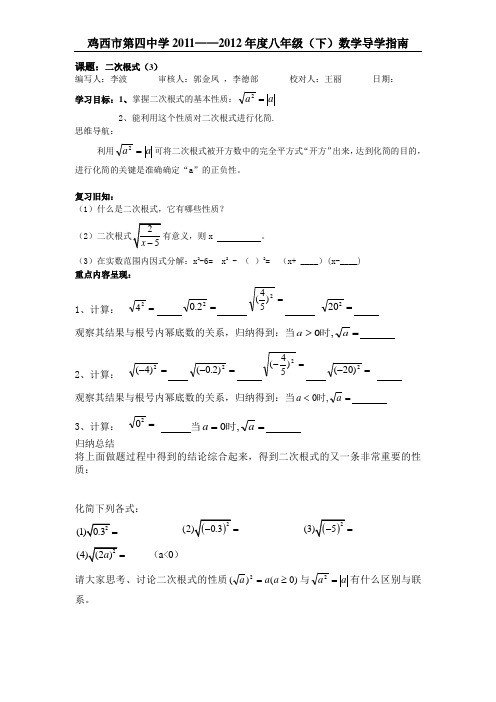 鸡西市第四中学 2011——2012 年度八年级（下）数学导学指南
课题：二次根式（3）
编写人：李波 审核人：郭金凤 ，李德部 校对人：王丽 日期：
学习目标：1、掌握二次根式的基本性质：√a² = |a|
2、能利用这个性质对二次根式进行化简.
思维导航：
利用√a² = |a| 可将二次根式被开方数中的完全平方式“开方”出来，达到化简的目的，
进行化简的关键是准确确定“a”的正负性。
复习旧知：
（1）什么是二次根式，它有哪些性质？
（2）二次根式√(2/(x-5)) 有意义，则 x ____ 。
（3）在实数范围内因式分解：x²-6= x² - （ ）²= （x+ ____）(x-____)
重点内容呈现：
1、计算： √4² = ____ √0.2² = ____ √(4/5)² = ____ √20² = ____
观察其结果与根号内幂底数的关系，归纳得到：当 a > 0时, √a = ____
2、计算： √(-4)² = ____ √(-0.2)² = ____ √(-4/5)² = ____ √(-20)² = ____
观察其结果与根号内幂底数的关系，归纳得到：当 a < 0时, √a = ____
3、计算： √0² = ____ 当 a = 0时, √a = ____
归纳总结
将上面做题过程中得到的结论综合起来，得到二次根式的又一条非常重要的性
质：
化简下列各式：
(1)√0.3² = ____ (2)√(-0.3)² = ____ (3)√(-5)² = ____
(4)√(2a)² = ____ （a<0）
请大家思考、讨论二次根式的性质 (√a)² = a(a ≥ 0) 与 √a² = |a| 有什么区别与联
系。